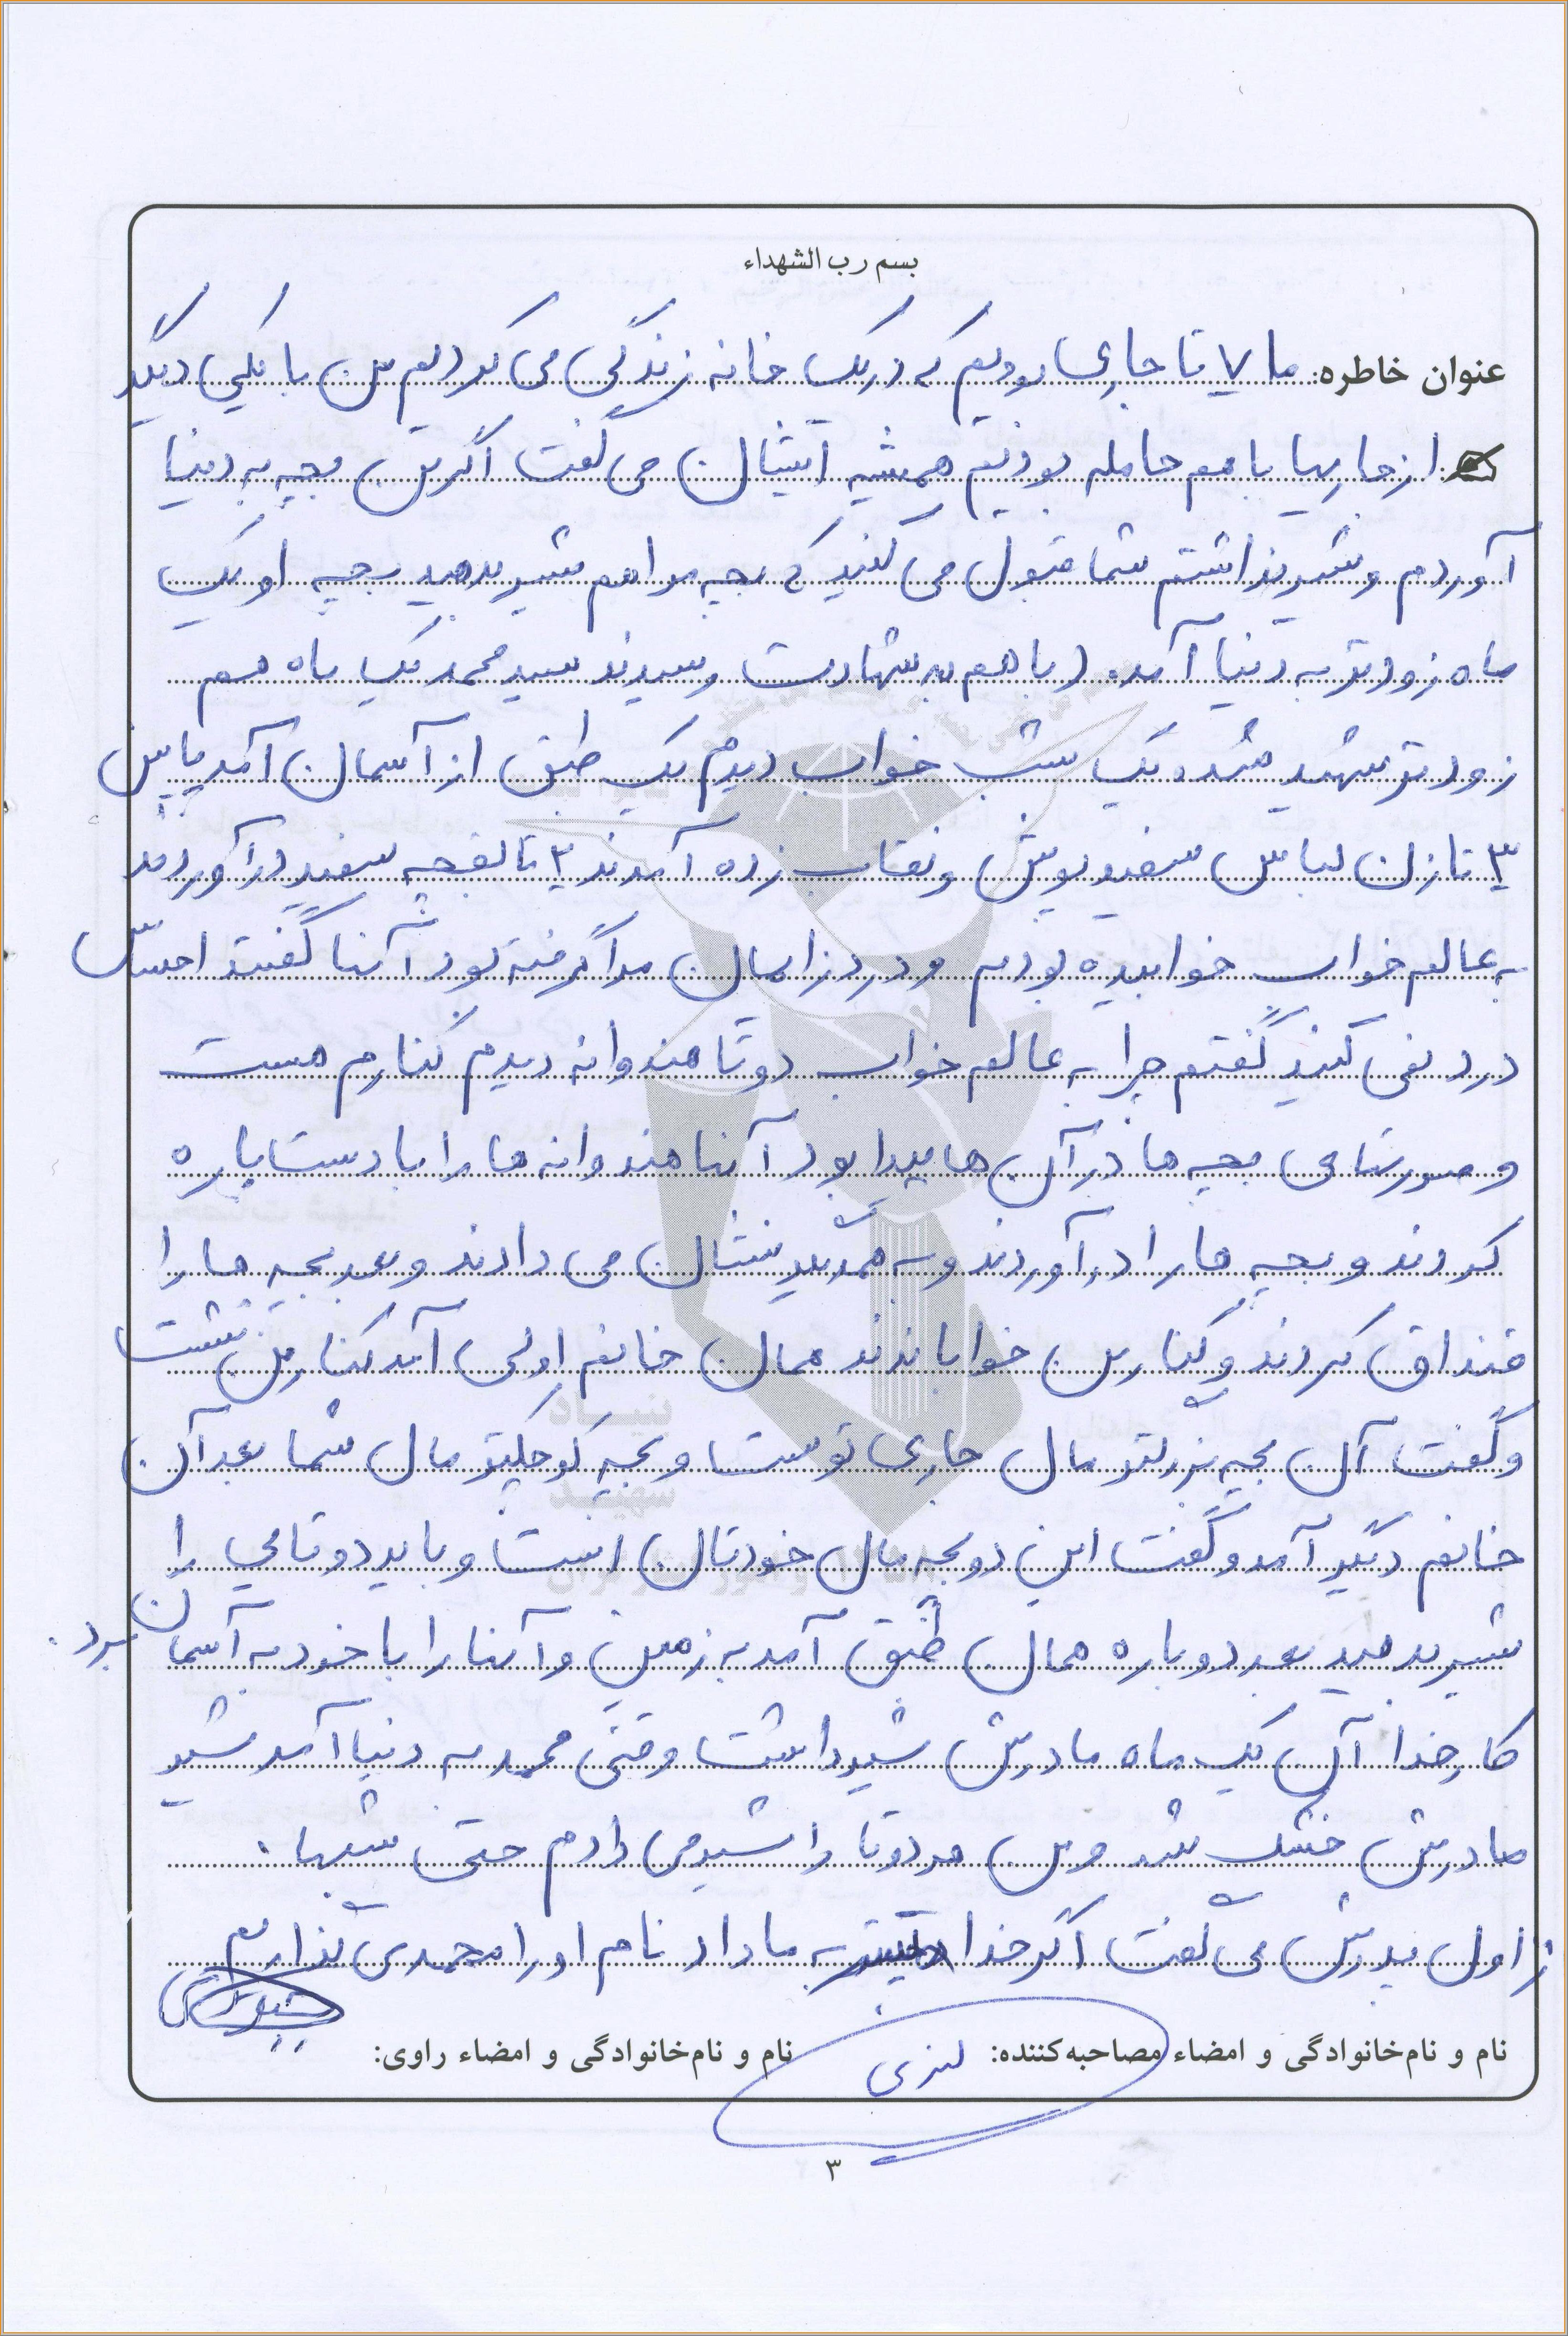 بسم رب الشهداء
عنوان خاطره: ما ۷ تا جاری بودیم که در یک خانه زندگی می کردیم من با یکی دیگر
از جاریها با هم حامله بودیم همیشه ایشان می گفت اگر من بچه به دنیا
آوردم و شیر نداشتم شما قبول می کنید که بچه مرا هم شیر بدهید بچه او یک
ماه زودتر به دنیا آمد. (با هم به شهادت رسیدند سید محمد یک ماه هم
زودتر شهید شد. یک شب خواب دیدم یک طبق از آسمان آمد پایین
۳ تا زن لباس سفید پوش و نقاب زده آمدند ۲ تا بقچه سفید درآوردند
به عالم خواب خوابیده بودم و درد زایمان مرا گرفته بود آنها گفتند احساس
درد نمی کنید گفتم چرا به عالم خواب دو تا هندوانه دیدم کنارم هست
و صورتهای بچه ها در آن ها پیدا بود آنها هندوانه ها را با دست پاره
کردند و بچه ها را درآوردند و به همدیگر نشان می دادند و بعد بچه ها را
قنداق کردند و کنار من خواباندند همان خانم اولی آمد کنار من نشست
و گفت آن بچه بزرگتر مال جاری توست و بچه کوچکتر مال شما بعد آن
خانم دیگر آمد و گفت این دو بچه مال خودتان است و باید دوتایی را
شیر بدهید بعد دوباره همان طبق آمد به زمین و آنها را با خود به آسمان برد.
کار خدا آن یک ماه مادرش شیر داشت وقتی محمد به دنیا آمد شیر
مادرش خشک شد و من هر دو تا را شیر می دادم حتی شبها.
از اول پدرش می گفت اگر خدا به ما داد نام او را محمدی بذاریم
نام و نام خانوادگی و امضاء مصاحبه کننده: نام و نام خانوادگی و امضاء راوی:
۳